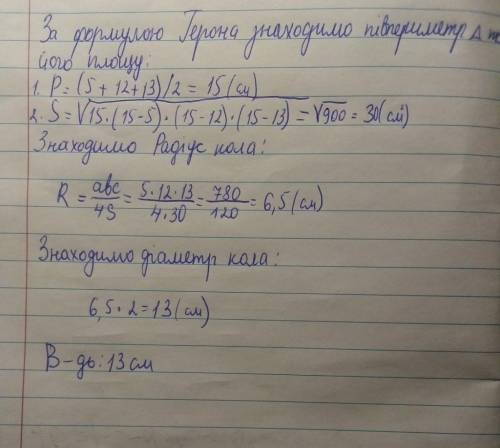 За формулою Герона знаходимо півпериметр Δ та
його площу:
1. P = (5 + 12 + 13)/2 = 15 (см)
2. S = √15·(15-5)·(15-12)·(15-13) = √900 = 30 (см²)
Знаходимо Радіус кола:
R = abc/4S = 5·12·13/4·30 = 780/120 = 6,5 (см)
Знаходимо діаметр кола:
6,5·2=13 (см)
В-дь: 13 см